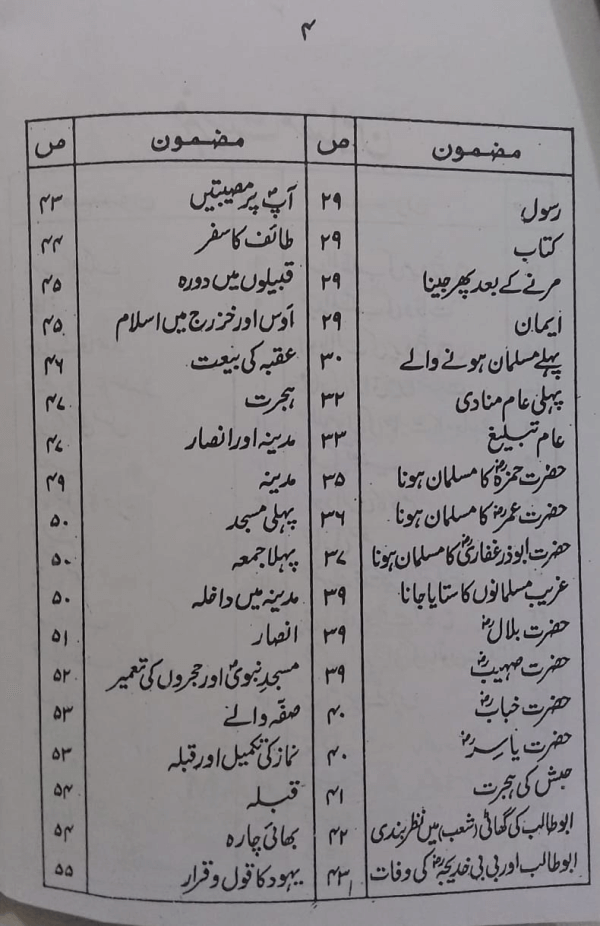 ۴
مضمون ص مضمون ص
رسول ۲۹ آپؐ پر مصیبتیں ۴۳
کتاب ۲۹ طائف کا سفر ۴۴
مرنے کے بعد پھر جینا ۲۹ قبیلوں میں دورہ ۴۵
ایمان ۲۹ اوس اور خزرج میں اسلام ۴۵
پہلے مسلمان ہونے والے ۳۰ عقبہ کی بیعت ۴۶
پہلی عام منادی ۳۲ ہجرت ۴۷
عام تبلیغ ۳۳ مدینہ اور انصار ۴۷
حضرت حمزہؓ کا مسلمان ہونا ۳۵ مدینہ ۴۹
حضرت عمرؓ کا مسلمان ہونا ۳۶ پہلی مسجد ۵۰
حضرت ابوذر غفاریؓ کا مسلمان ہونا ۳۷ پہلا جمعہ ۵۰
غریب مسلمانوں کا ستایا جانا ۳۹ مدینہ میں داخلہ ۵۰
حضرت بلالؓ ۳۹ انصار ۵۱
حضرت صہیبؓ ۳۹ مسجدِ نبویؐ اور حجروں کی تعمیر ۵۲
حضرت خبابؓ ۴۰ صفّہ والے ۵۳
حضرت یاسرؓ ۴۰ نماز کی تکمیل اور قبلہ ۵۳
حبش کی ہجرت ۴۱ قبلہ ۵۴
ابوطالب کی گھاٹی (شعب) میں نظر بندی ۴۲ بھائی چارہ ۵۴
ابوطالب اور بی بی خدیجہؓ کی وفات ۴۳ یہود کا قول و قرار ۵۵